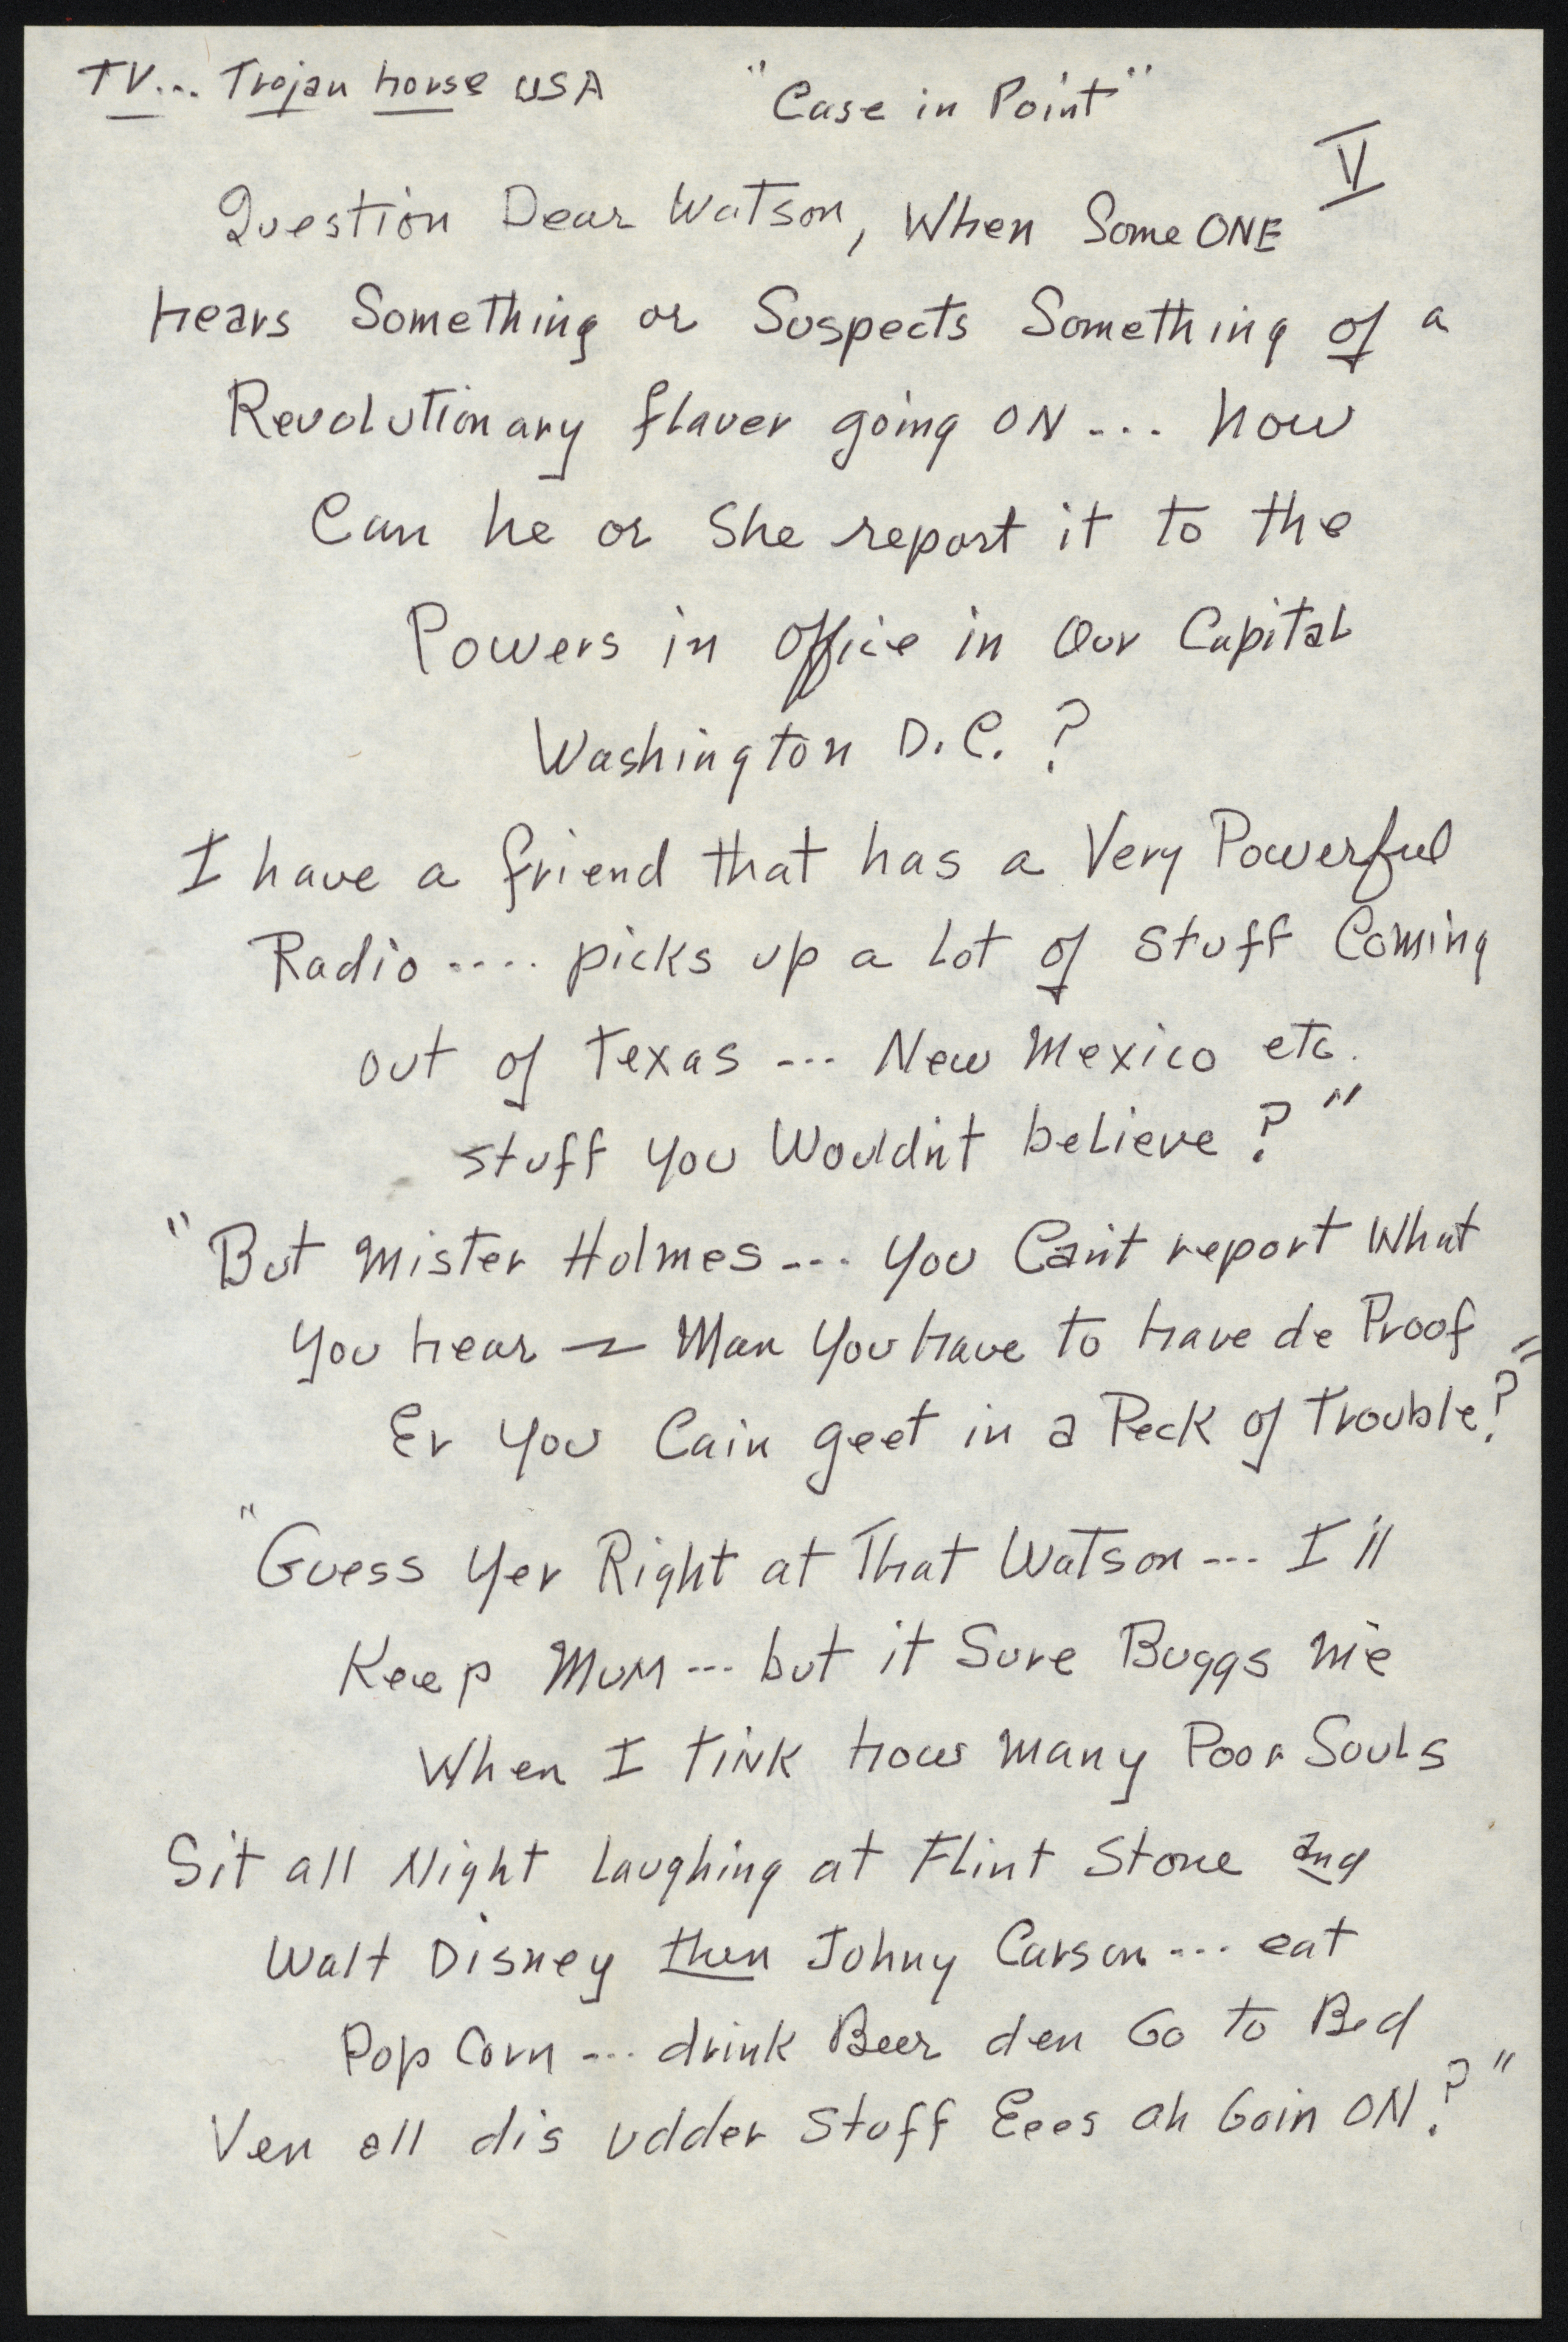 TV... Trojan horse USA
"Case in Point"
V
Question Dear Watson, When SomeONE
hears Something or Suspects Something of a
Revolutionary flaver going ON... how
Can he or She report it to the
Powers in Office in Our Capital
Washington D.C. ?
I have a friend that has a Very Powerful
Radio.... picks up a lot of stuff Coming
out of Texas --- New Mexico etc.
stuff you Wouldn't believe ?"
"But Mister Holmes --- you Cain't report What
you hear — Man You have to have de Proof
Er you Cain geet in a Peck of trouble?"
"Guess Yer Right at That Watson --- I'll
Keep MuM --- but it Sure Buggs me
When I tink how many Poor Souls
Sit all Night laughing at Flint Stone and
Walt Disney then Johny Carson --- eat
Pop Corn --- drink Beer den Go to Bed
Ven all dis udder Stuff Eees ah Goin ON?"